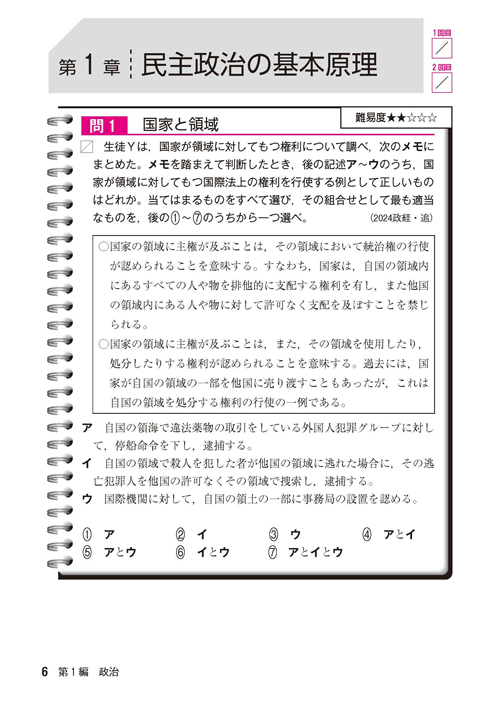 第1章 民主政治の基本原理
1回目
2回目
難易度★★☆☆☆
問1 国家と領域
生徒Yは，国家が領域に対してもつ権利について調べ，次のメモに
まとめた。メモを踏まえて判断したとき，後の記述ア～ウのうち，国
家が領域に対してもつ国際法上の権利を行使する例として正しいもの
はどれか。当てはまるものをすべて選び，その組合せとして最も適当
なものを，後の①～⑦のうちから一つ選べ。 （2024政経・追）
○国家の領域に主権が及ぶことは，その領域において統治権の行使
が認められることを意味する。すなわち，国家は，自国の領域内
にあるすべての人や物を排他的に支配する権利を有し，また他国
の領域内にある人や物に対して許可なく支配を及ぼすことを禁じ
られる。
○国家の領域に主権が及ぶことは，また，その領域を使用したり，
処分したりする権利が認められることを意味する。過去には，国
家が自国の領域の一部を他国に売り渡すこともあったが，これは
自国の領域を処分する権利の行使の一例である。
ア 自国の領海で違法薬物の取引をしている外国人犯罪グループに対し
て，停船命令を下し，逮捕する。
イ 自国の領域で殺人を犯した者が他国の領域に逃れた場合に，その逃
亡犯罪人を他国の許可なくその領域で捜索し，逮捕する。
ウ 国際機関に対して，自国の領土の一部に事務局の設置を認める。
① ア ② イ ③ ウ ④ アとイ
⑤ アとウ ⑥ イとウ ⑦ アとイとウ
6 第1編 政治